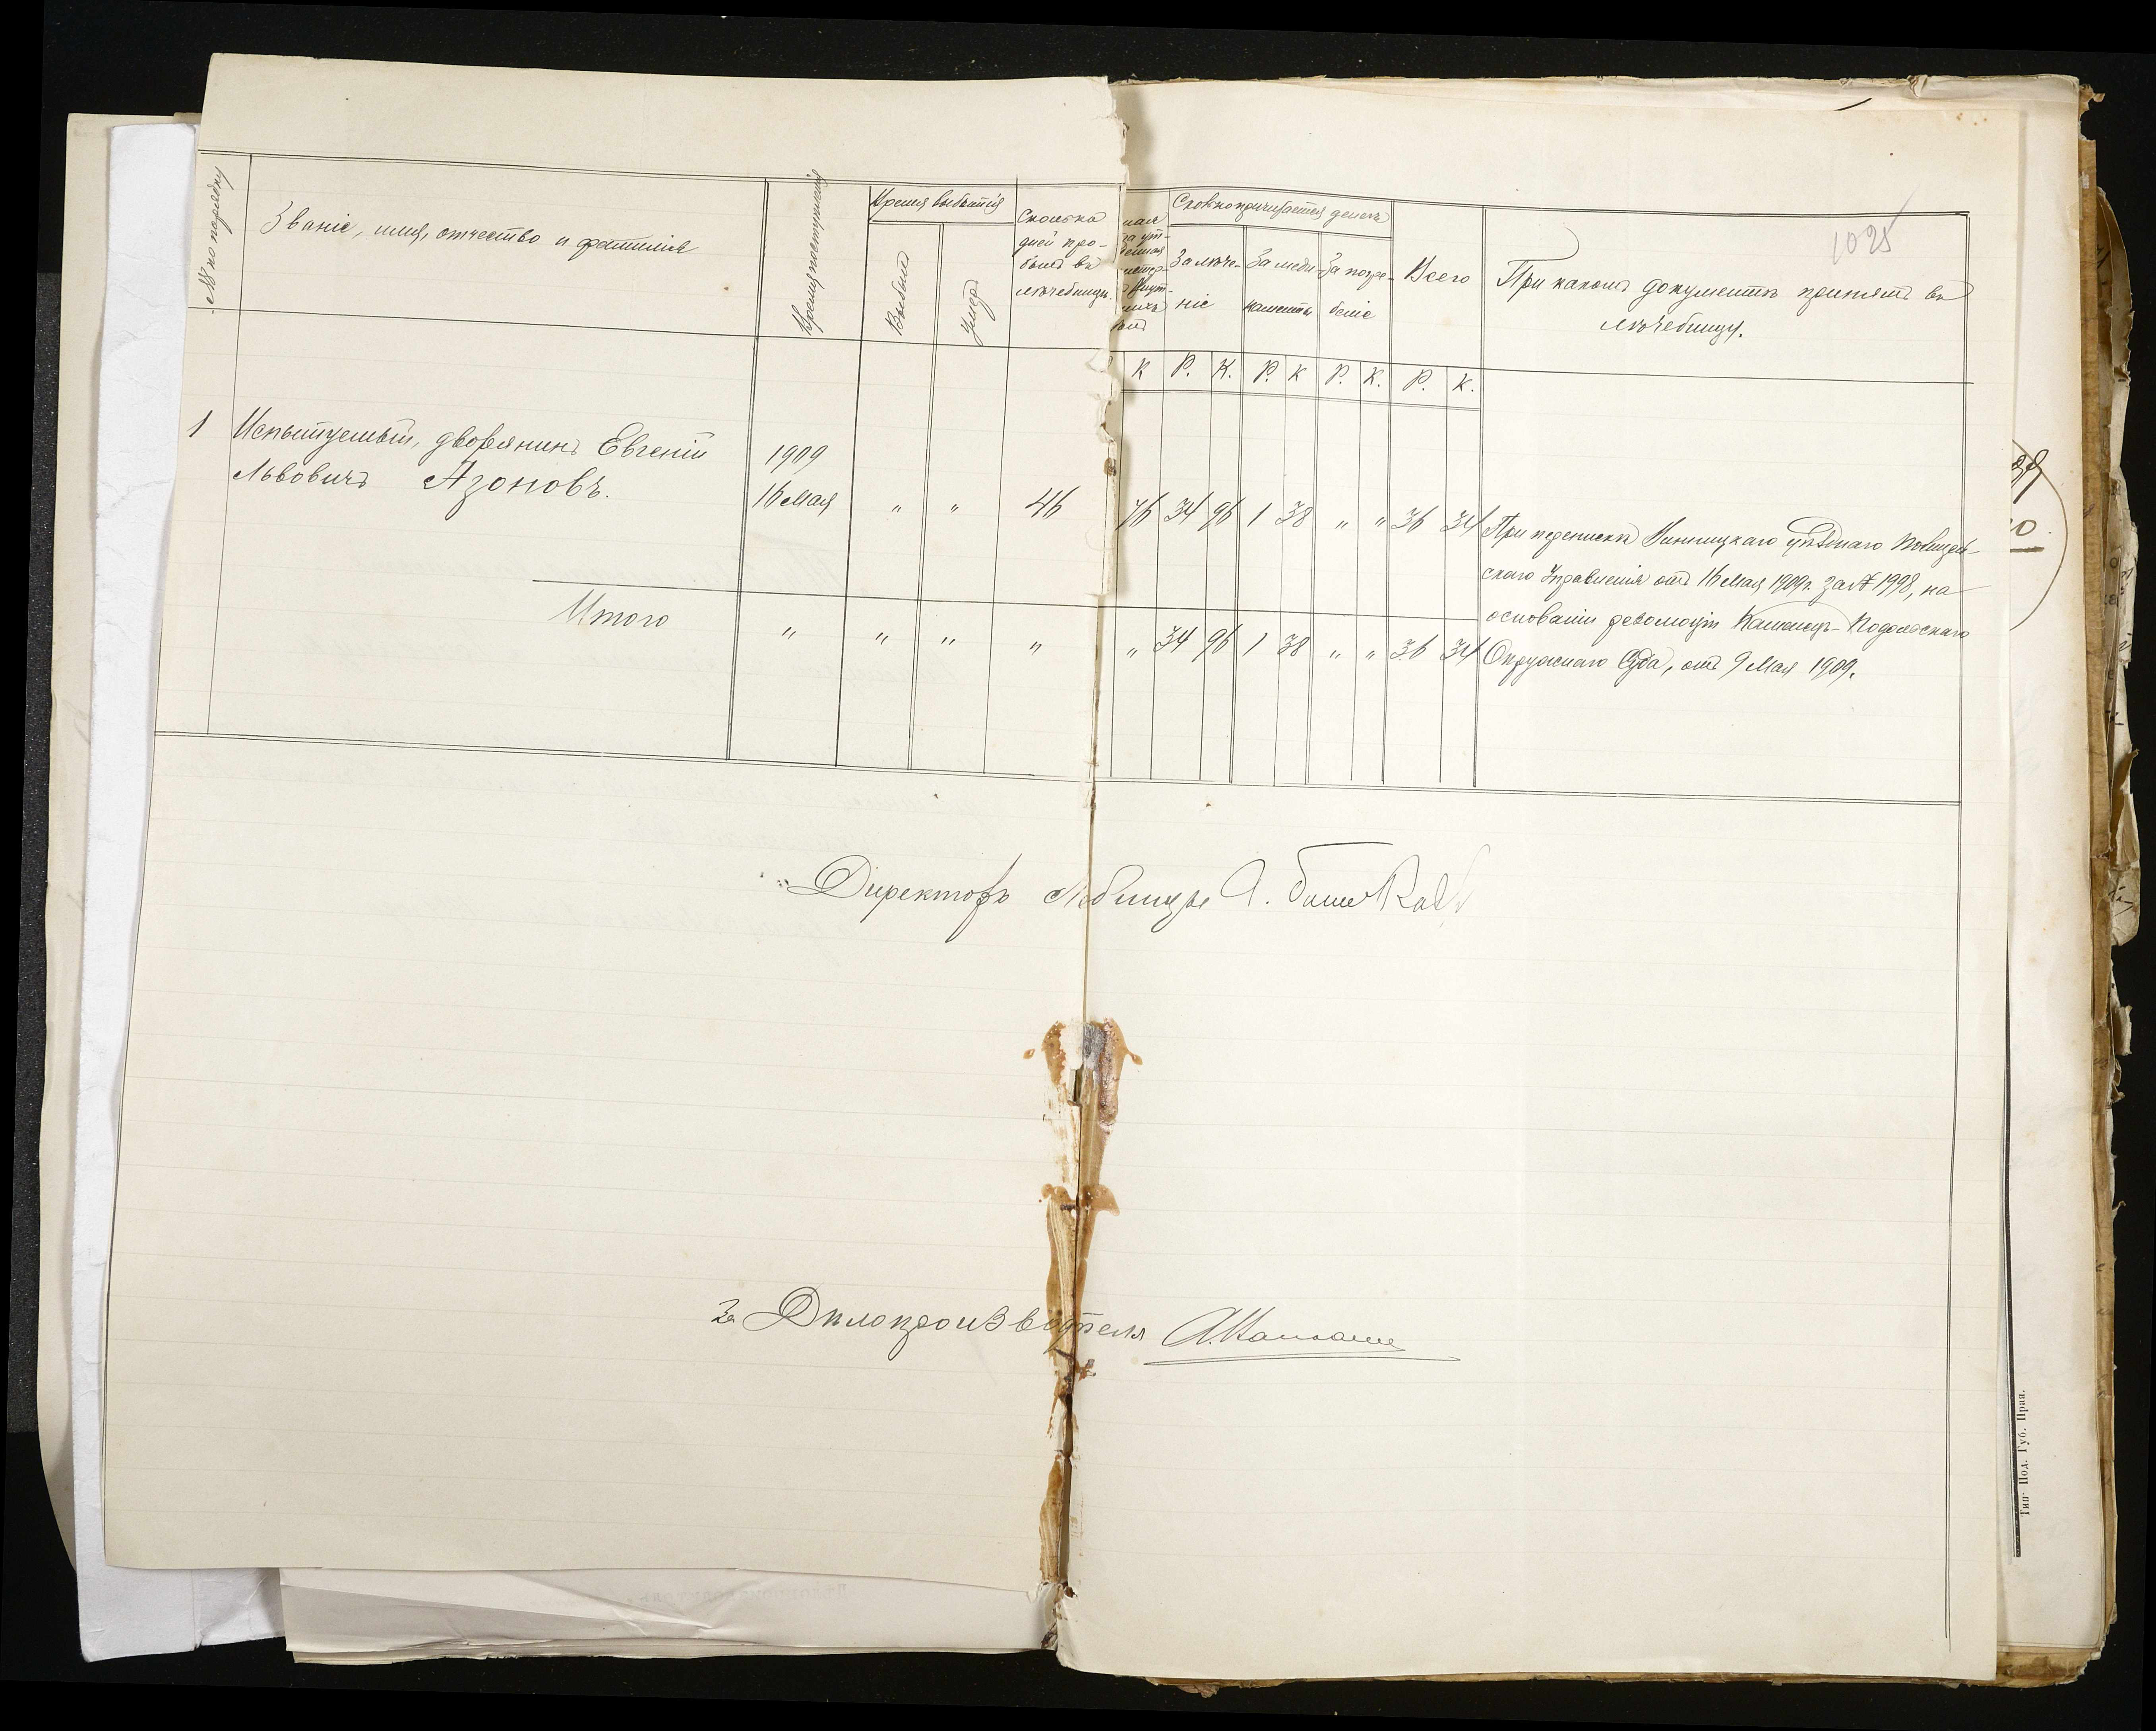 1025
№№ по порядку
Званіе, имя, отчество и фамилія
Время поступленія
Время выбытія
Выбылъ
Умеръ
Сколько
дней про-
былъ въ
лѣчебницѣ.
Сколько причитается денегъ
За лѣче-
ніе
За меди-
каменты
За погре-
беніе
Всего
При какомъ документѣ принятъ въ
лѣчебницу.
К Р. К. Р. К Р. К. Р. К.
1 Испытуемый, дворянинъ Евгеній
Львовичъ Азоновъ.
1909
16 Мая " " 46 76 34 96 1 38 " " 36 34
При перепискѣ Винницкаго уѣзднаго Полицей-
скаго Управленія отъ 16 Мая 1909 г. за № 1998, на
основаніи резолюціи Каменецъ-Подольскаго
Окружнаго Суда, отъ 9 Мая 1909.
Итого " " " " " 34 96 1 38 " " 36 34
Директоръ
За Дѣлопроизводителя
Тип. Под. Губ. Прав.